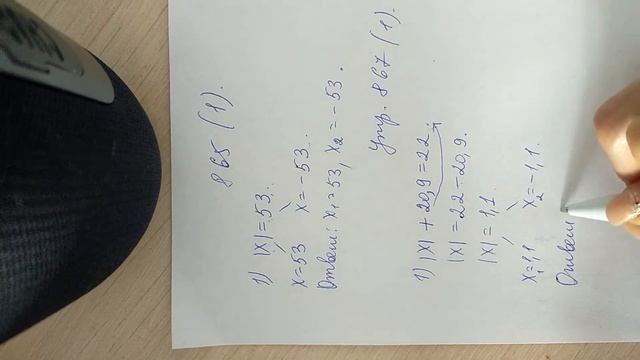 865 (1).
1) |x| = 53.
x = 53 x = -53.
Ответ: x₁ = 53, x₂ = -53.
Упр. 867 (1).
1) |x| + 20,9 = 22.
|x| = 22 - 20,9.
|x| = 1,1.
x₁ = 1,1 x₂ = -1,1.
Ответ